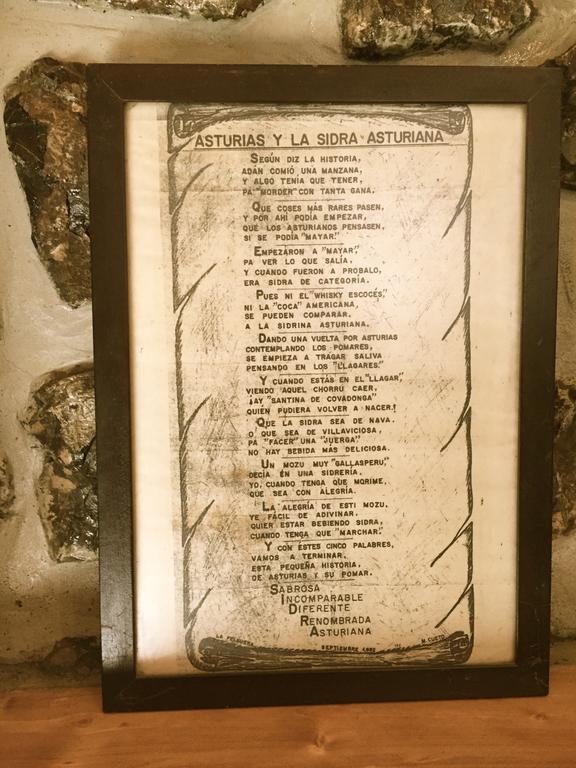 ASTURIAS Y LA SIDRA ASTURIANA
SEGÚN DIZ LA HISTORIA,
ADÁN COMIÓ UNA MANZANA,
Y ALGO TENÍA QUE TENER,
PA "MORDER" CON TANTA GANA.
QUE COSES MÁS RARES PASEN,
Y POR AHÍ PODÍA EMPEZAR,
QUE LOS ASTURIANOS PENSASEN,
SI SE PODÍA "MAYAR."
EMPEZARON A "MAYAR",
PA VER LO QUE SALÍA,
Y CUANDO FUERON A PROBALO,
ERA SIDRA DE CATEGORÍA.
PUES NI EL "WHISKY ESCOCÉS",
NI LA "COCA" AMERICANA,
SE PUEDEN COMPARAR,
A LA SIDRINA ASTURIANA.
DANDO UNA VUELTA POR ASTURIAS
CONTEMPLANDO LOS POMARES,
SE EMPIEZA A TRAGAR SALIVA
PENSANDO EN LOS "LLAGARES."
Y CUANDO ESTÁS EN EL "LLAGAR",
VIENDO AQUEL CHORRU CAER,
¡AY "SANTINA DE COVADONGA"
QUIÉN PUDIERA VOLVER A NACER!
QUE LA SIDRA SEA DE NAVA,
O QUE SEA DE VILLAVICIOSA,
PA "FACER" UNA "JUERGA"
NO HAY BEBIDA MÁS DELICIOSA.
UN MOZU MUY "GALLASPERU",
DECÍA EN UNA SIDRERÍA,
YO, CUANDO TENGA QUE MORIME,
QUE SEA CON ALEGRÍA.
LA ALEGRÍA DE ESTI MOZU,
YE FÁCIL DE ADIVINAR,
QUIER ESTAR BEBIENDO SIDRA,
CUANDO TENGA QUE "MARCHAR."
Y CON ESTES CINCO PALABRES,
VAMOS A TERMINAR,
ESTA PEQUEÑA HISTORIA,
DE ASTURIAS Y SU POMAR.
SABROSA
INCOMPARABLE
DIFERENTE
RENOMBRADA
ASTURIANA
LA FELGUERA SEPTIEMBRE M. CUETO